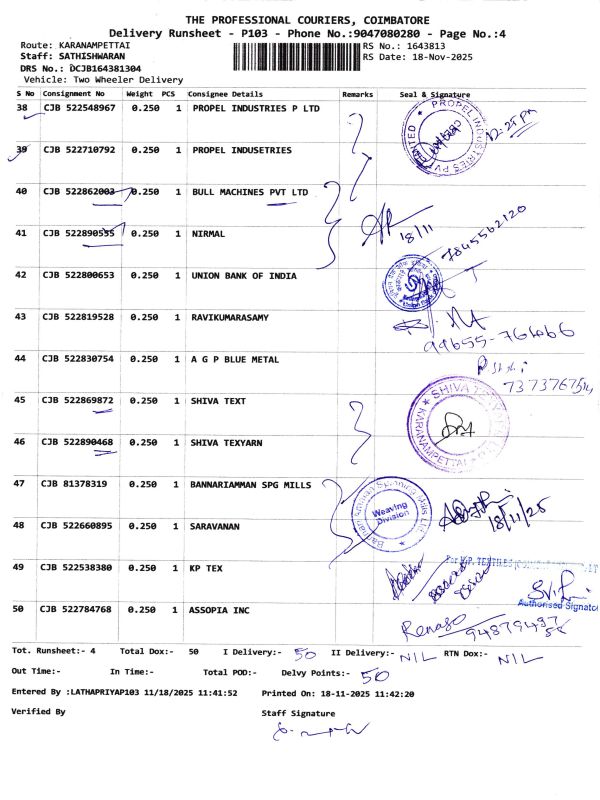 THE PROFESSIONAL COURIERS, COIMBATORE
Delivery Runsheet - P103 - Phone No.:9047080280 - Page No.:4
Route: KARANAMPETTAI RS No.: 1643813
Staff: SATHISHWARAN RS Date: 18-Nov-2025
DRS No.: DCJB164381304
Vehicle: Two Wheeler Delivery
S No Consignment No Weight PCS Consignee Details Remarks Seal & Signature
38 CJB 522548967 0.250 1 PROPEL INDUSTRIES P LTD
PROPEL INDUSTRIES PVT LIMITED
12:25 PM
39 CJB 522710792 0.250 1 PROPEL INDUSETRIES
40 CJB 522862003 0.250 1 BULL MACHINES PVT LTD
18/11
7845562120
41 CJB 522890535 0.250 1 NIRMAL
42 CJB 522800653 0.250 1 UNION BANK OF INDIA
43 CJB 522819528 0.250 1 RAVIKUMARASAMY
99655-76466
44 CJB 522830754 0.250 1 A G P BLUE METAL
45 CJB 522869872 0.250 1 SHIVA TEXT
SHIVA
KARANAMPETTAI
46 CJB 522890468 0.250 1 SHIVA TEXYARN
47 CJB 81378319 0.250 1 BANNARIAMMAN SPG MILLS
Bannari Amman Spinning Mills Ltd
Weaving
Division
18/11/25
48 CJB 522660895 0.250 1 SARAVANAN
49 CJB 522538380 0.250 1 KP TEX
For K.P. TEXTILES
Authorised Signatory
50 CJB 522784768 0.250 1 ASSOPIA INC
Tot. Runsheet:- 4 Total Dox:- 50 I Delivery:- 50 II Delivery:- NIL RTN Dox:- NIL
Out Time:- In Time:- Total POD:- Delvy Points:- 50
Entered By :LATHAPRIYAP103 11/18/2025 11:41:52 Printed On: 18-11-2025 11:42:20
Verified By Staff Signature